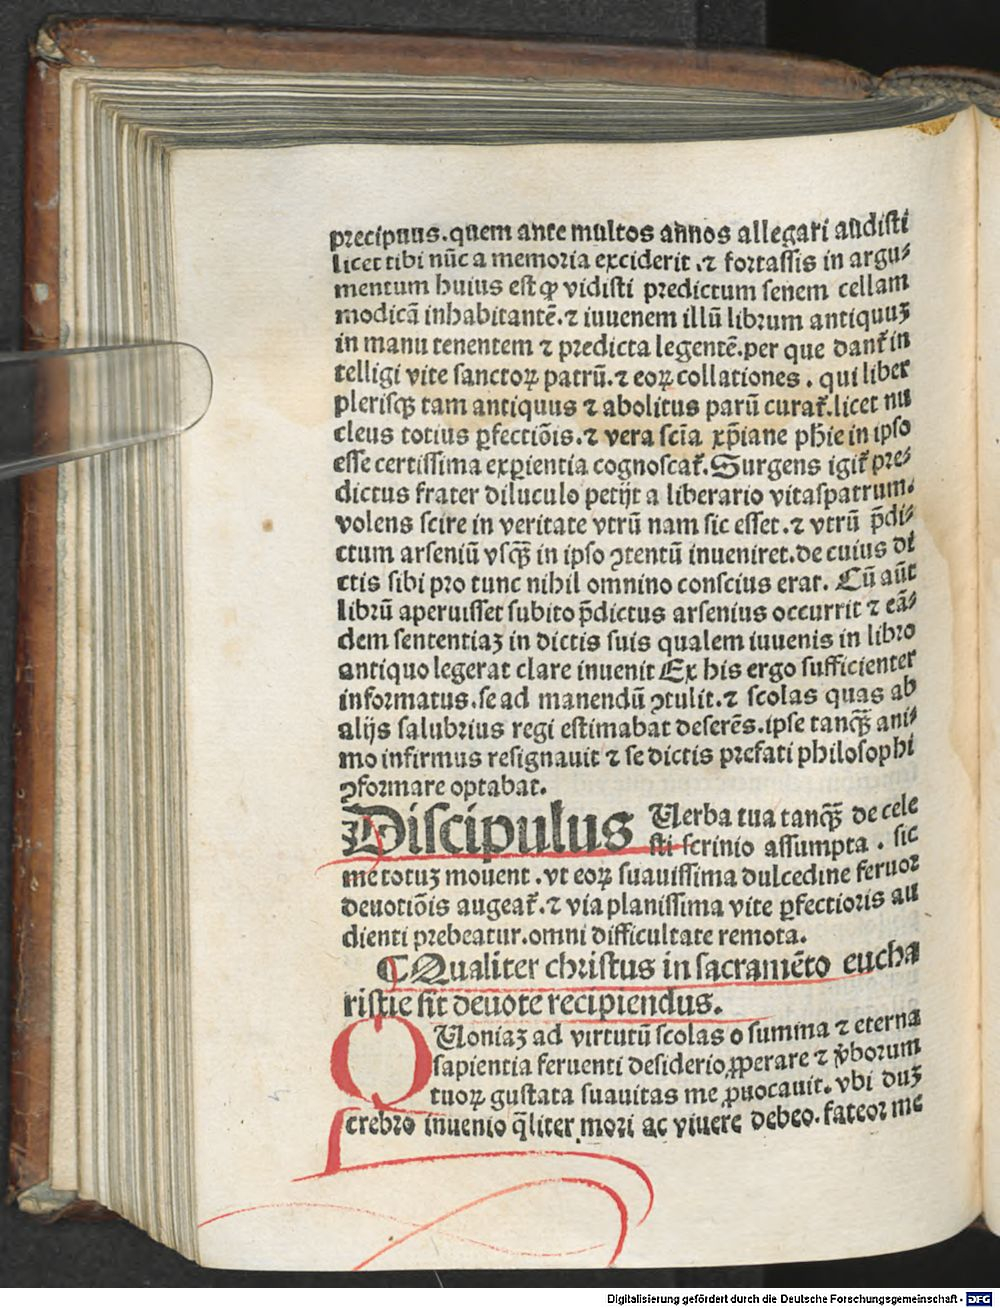 precipuus.quem ante multos annos allegari audisti
licet tibi nūc a memoria exciderit .⁊ fortassis in argu⸗
mentum huius est ꝙ vidisti predictum senem cellam
modicā inhabitantē.⁊ iuuenem illū librum antiquuꝫ
in manu tenentem ⁊ predicta legentē.per que dant᷑ in
telligi vite sanctoꝝ patrū.⁊ eoꝝ collationes . qui liber
plerisqꝫ tam antiquus ⁊ abolitus parū curat᷑.licet nu
cleus totius ꝑfectiōis.⁊ vera scīa xp̄iane phīe in ipso
esse certissima exꝑientia cognoscat᷑.Surgens igit᷑ pre⸗
dictus frater diluculo petijt a liberario vitaspatrum.
volens scire in veritate vtrū nam sic esset.⁊ vtrū p̄di⸗
ctum arseniū vsqꝫ in ipso ꝯtentū inueniret.de cuius di
ctis sibi pro tunc nihil omnino conscius erat. Cū aūt
librū aperuisset subito p̄dictus arsenius occurrit ⁊ eā⸗
dem sententiaꝫ in dictis suis qualem iuuenis in libro
antiquo legerat clare inuenit Ex his ergo sufficienter
informatus.se ad manendū ꝯtulit.⁊ scolas quas ab
alijs salubrius regi estimabat deserēs.ipse tanqꝫ ani⸗
mo infirmus resignauit ⁊ se dictis prefati philosophi
ꝯformare optabat.
Discipulus Uerba tua tanqꝫ de cele
sti scrinio assumpta . sic
me totuꝫ mouent .vt eoꝝ suauissima dulcedine feruor
deuotiōis augeat᷑.⁊ via planissima vite ꝑfectioris au
dienti prebeatur.omni difficultate remota.
¶ Qualiter christus in sacramēto eucha
ristie sit deuote recipiendus.
QUoniaꝫ ad virtutū scolas o summa ⁊ eterna
sapientia feruenti desiderio ꝓperare ⁊ v̄borum
tuoꝝ gustata suauitas me ꝓuocauit. vbi duꝫ
crebro inuenio q̄liter mori ac viuere debeo. fateor me
Digitalisierung gefördert durch die Deutsche Forschungsgemeinschaft - DFG